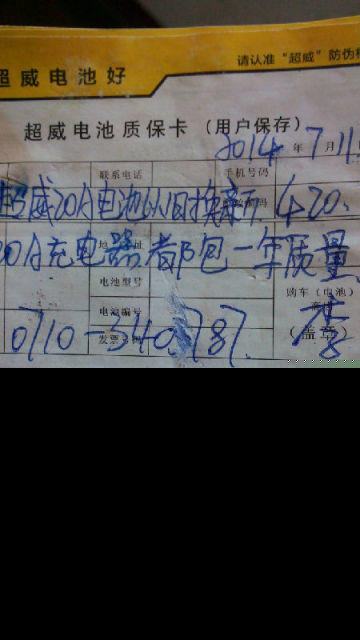 超威电池好
请认准“超威”防伪标
超威电池质保卡(用户保存)
2014年7月11
联系电话 手机号码
超威20A电池以旧换新 420.
20A充电器都包一年质量
电池型号 购车(电池)
电池编号
0710-340.787.
发票号码 (盖章)